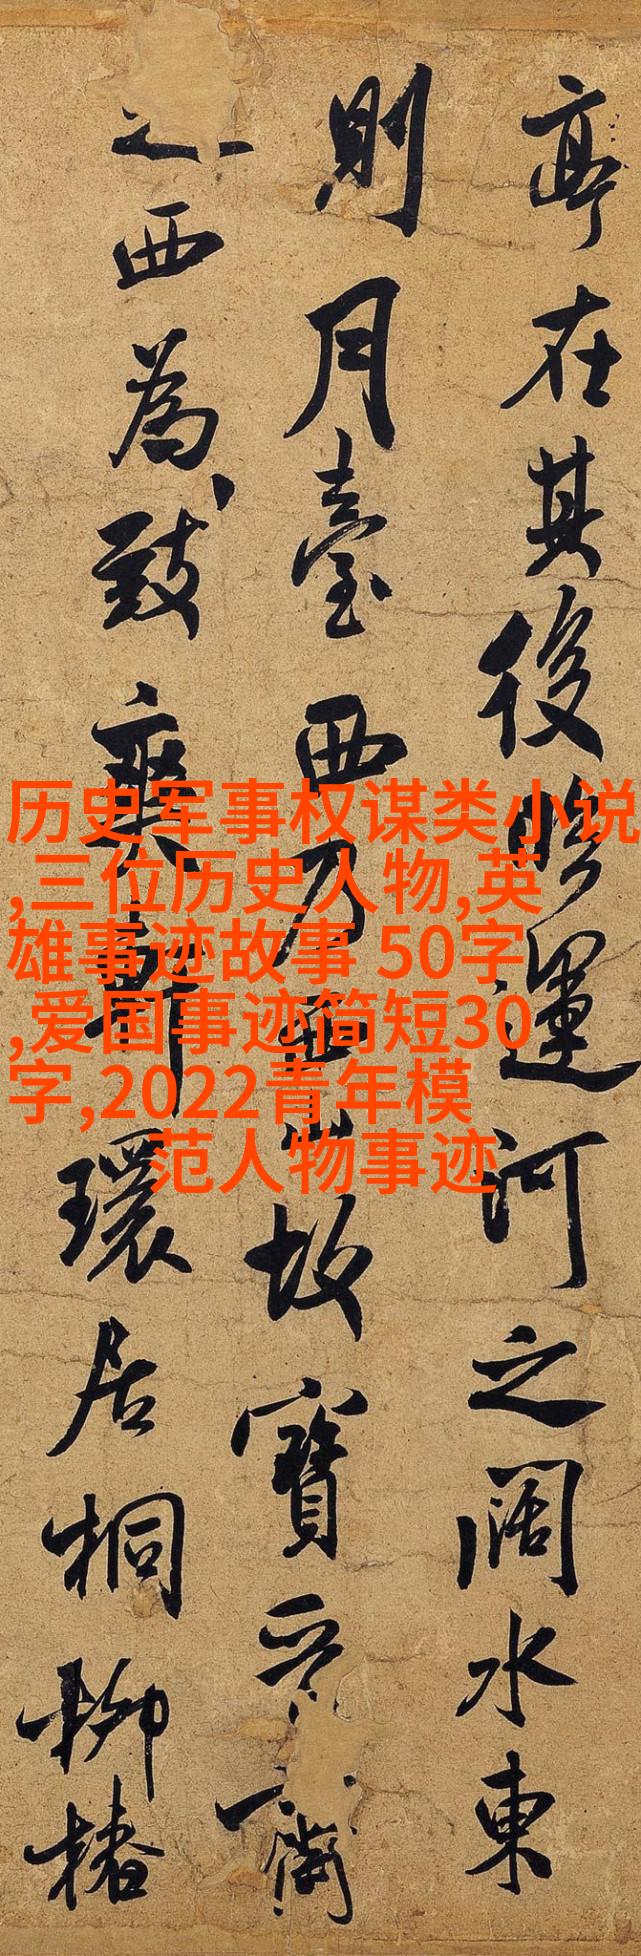 亭在其後臨運河之闊水東
則月臺西乃西山故寶晉齋
之西為致爽軒環居桐柳椿
历史军事权谋类小说
,三位历史人物,英
雄事迹故事 50字
,爱国事迹简短30
字,2022青年模
范人物事迹